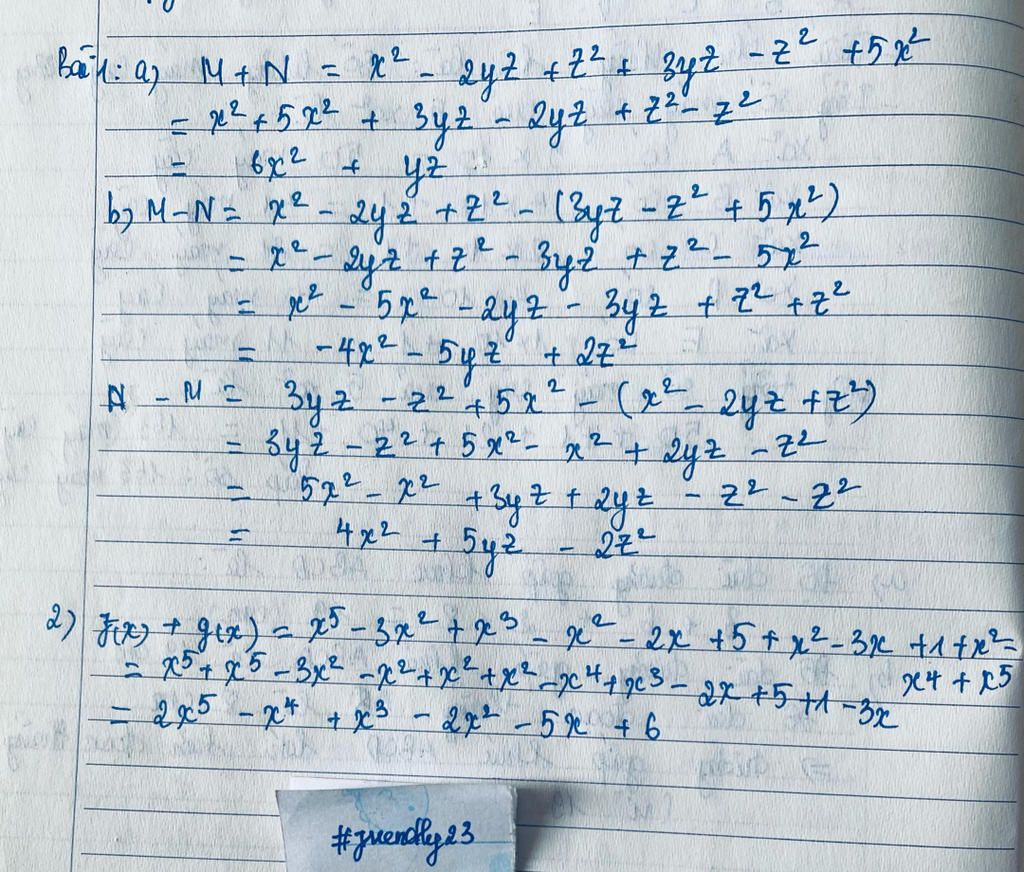 Bài 1: a) M + N = x² - 2yz + z² + 3yz - z² + 5x²
= x² + 5x² + 3yz - 2yz + z² - z²
= 6x² + yz
b) M - N = x² - 2yz + z² - (3yz - z² + 5x²)
= x² - 2yz + z² - 3yz + z² - 5x²
= x² - 5x² - 2yz - 3yz + z² + z²
= -4x² - 5yz + 2z²
N - M = 3yz - z² + 5x² - (x² - 2yz + z²)
= 3yz - z² + 5x² - x² + 2yz - z²
= 5x² - x² + 3yz + 2yz - z² - z²
= 4x² + 5yz - 2z²
2) f(x) + g(x) = x⁵ - 3x² + x³ - x² - 2x + 5 + x² - 3x + 1 + x² -
x⁴ + x⁵
= x⁵ + x⁵ - 3x² - x² + x² + x² - x⁴ + x³ - 2x + 5 + 1 - 3x
= 2x⁵ - x⁴ + x³ - 2x² - 5x + 6